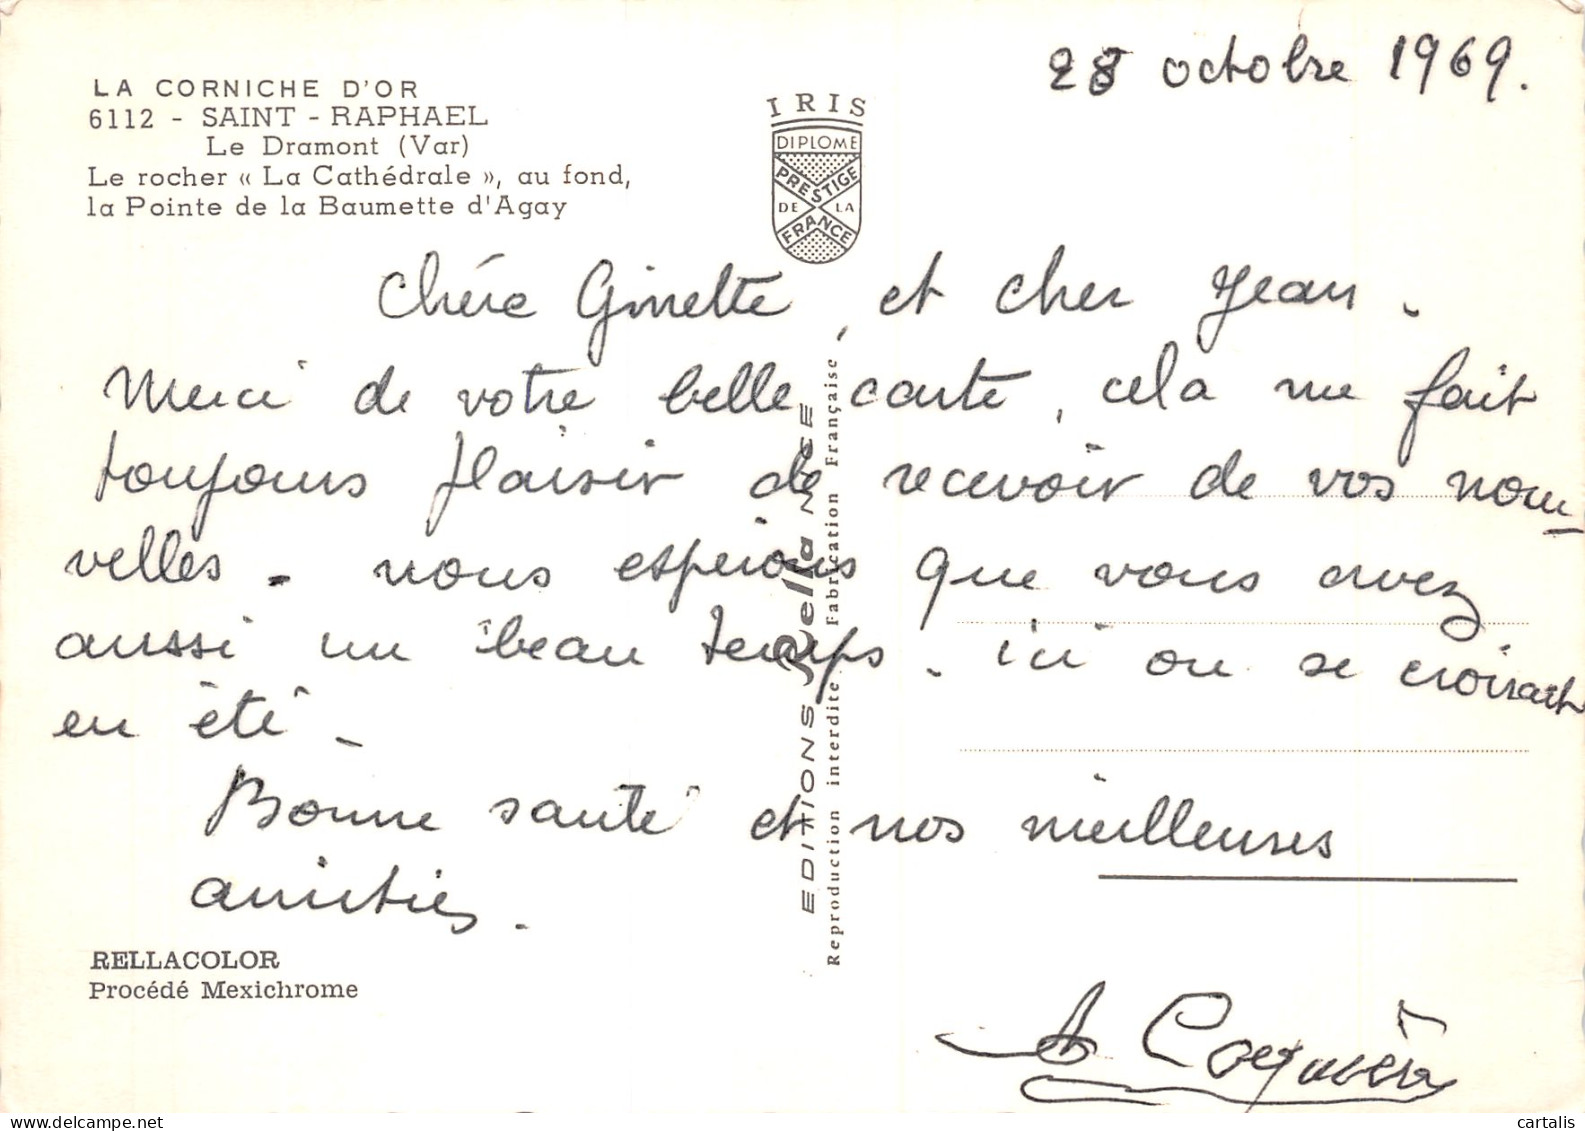 28 octobre 1969.
LA CORNICHE D'OR
6112 - SAINT - RAPHAEL
Le Dramont (Var)
Le rocher « La Cathédrale », au fond,
la Pointe de la Baumette d'Agay
IRIS
DIPLOME
PRESTIGE
DE LA
FRANCE
Chére Ginette, et cher Jean.
Merci de votre belle carte, cela me fait
toujours plaisir de recevoir de vos nou-
velles. nous esperons que vous avez
aussi un beau temps. ici on se croirait
en été -
Bonne santé et nos meilleures
amitiés.
EDITIONS Rella NICE
Reproduction interdite Fabrication Française
RELLACOLOR
Procédé Mexichrome
A
cartalis